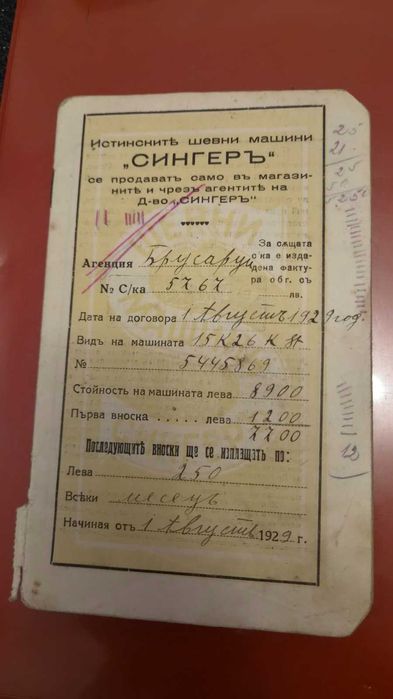 Истинскитѣ шевни машини
„СИНГЕРЪ“
се продаватъ само въ магази-
нитѣ и чрезъ агентитѣ на
Д-во „СИНГЕРЪ“
За сѫщата
с/ка е изда-
дена факту-
ра обг. съ
лв.
Агенция
№ С/ка 5767
Дата на договора 1 Августъ 1929 год.
Видъ на машината 15К26
№ 5445869
Стойность на машината лева 8900
Първа вноска . . . . . лева 1200
7700
Последующитѣ вноски ще се изплащатъ по:
Лева 250
Всѣки месецъ
Начиная отъ 1 Августъ 1929 г.
25
21
12